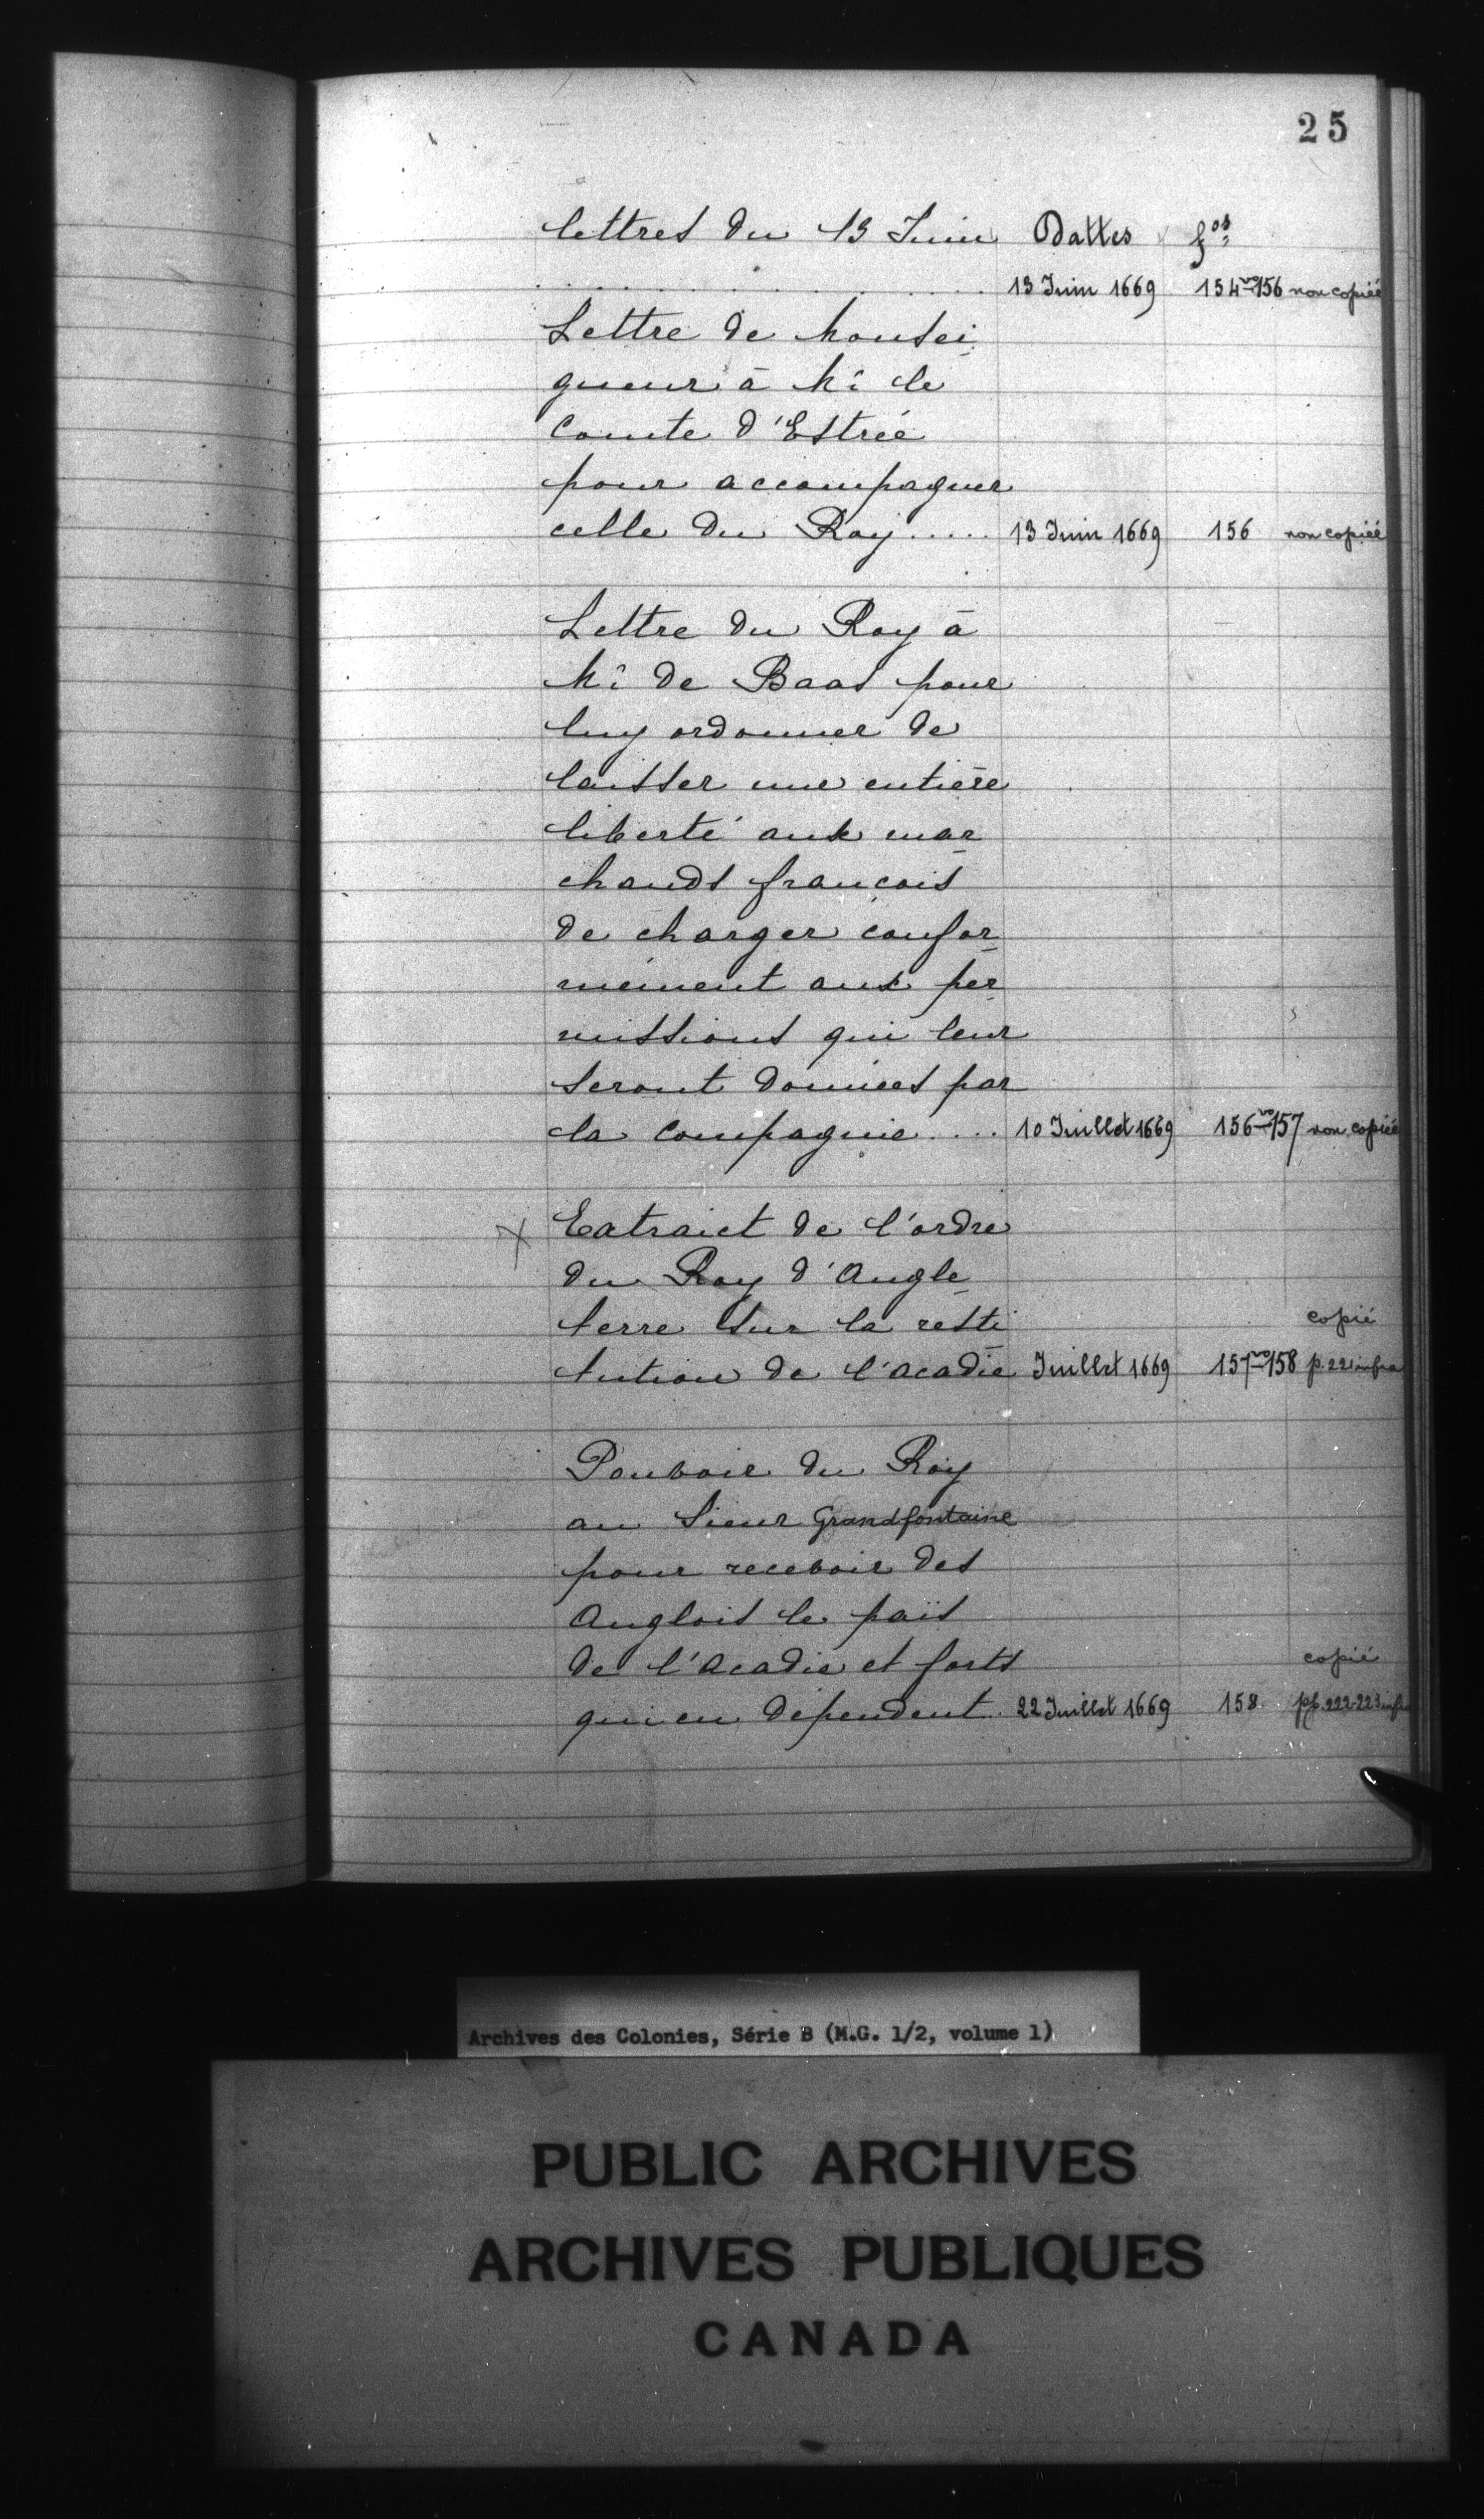 25
lettres du 13 Juin Dattes fos
. . . . . . . . . . 13 Juin 1669 154vo-156 non copiée
Lettre de Monsei
gneur à Mr le
Comte d'Estrée
pour accompagner
celle du Roy..... 13 Juin 1669 156 non copiée
Lettre du Roy à
Mr de Baas pour
luy ordonner de
laisser une entière
liberté aux mar
chands francois
de charger confor
mément aux per
missions qui leur
seront données par
la Compagnie.... 10 Juillet 1669 156vo-157 non copiée
x Extraict de l'ordre
du Roy d'Angle
terre sur la resti copié
tution de l'Acadie Juillet 1669 157vo-158 p. 221 infra
Pouvoir du Roy
au Sieur Grandfontaine
pour recevoir des
Anglois le païs
de l'Acadie et forts copié
qui en dépendent.. 22 Juillet 1669 158 pp. 222-223 infra
Archives des Colonies, Série B (M.G. 1/2, volume 1)
PUBLIC ARCHIVES
ARCHIVES PUBLIQUES
CANADA